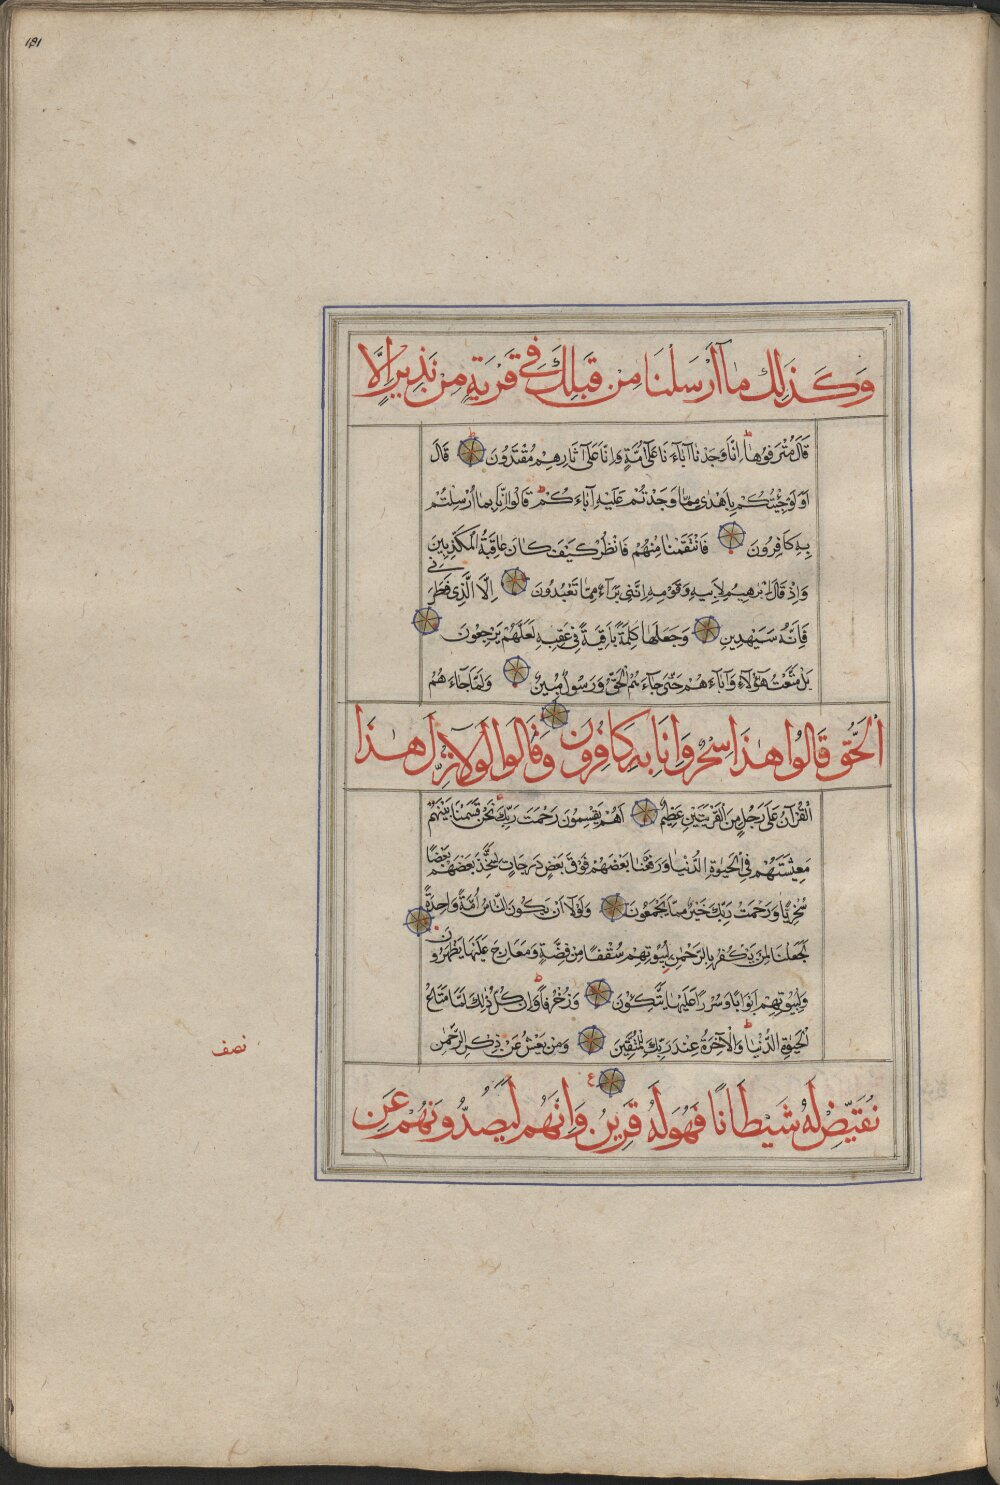 181
وَكَذَلِكَ مَآ أَرْسَلْنَا مِنْ قَبْلِكَ فِي قَرْيَةٍ مِنْ نَذِيرٍ إِلَّا
قَالَ مُتْرَفُوهَا إِنَّا وَجَدْنَا آبَاءَنَا عَلَى أُمَّةٍ وَإِنَّا عَلَى آثَارِهِمْ مُقْتَدُونَ قَالَ
أَوَلَوْ جِئْتُكُمْ بِأَهْدَى مِمَّا وَجَدْتُمْ عَلَيْهِ آبَاءَكُمْ قَالُوا إِنَّا بِمَا أُرْسِلْتُمْ
بِهِ كَافِرُونَ فَانْتَقَمْنَا مِنْهُمْ فَانْظُرْ كَيْفَ كَانَ عَاقِبَةُ الْمُكَذِّبِينَ
وَإِذْ قَالَ إِبْرَهِيمُ لِأَبِيهِ وَقَوْمِهِ إِنَّنِي بَرَآءٌ مِمَّا تَعْبُدُونَ إِلَّا الَّذِي فَطَرَنِي
فَإِنَّهُ سَيَهْدِينِ وَجَعَلَهَا كَلِمَةً بَاقِيَةً فِي عَقِبِهِ لَعَلَّهُمْ يَرْجِعُونَ
بَلْ مَتَّعْتُ هَؤُلَاءِ وَآبَاءَهُمْ حَتَّى جَاءَهُمُ الْحَقُّ وَرَسُولٌ مُبِينٌ وَلَمَّا جَاءَهُمُ
الْحَقُّ قَالُوا هَذَا سِحْرٌ وَإِنَّا بِهِ كَافِرُونَ وَقَالُوا لَوْلَا نُزِّلَ هَذَا
الْقُرْآنُ عَلَى رَجُلٍ مِنَ الْقَرْيَتَيْنِ عَظِيمٍ أَهُمْ يَقْسِمُونَ رَحْمَتَ رَبِّكَ نَحْنُ قَسَمْنَا بَيْنَهُمْ
مَعِيشَتَهُمْ فِي الْحَيَوةِ الدُّنْيَا وَرَفَعْنَا بَعْضَهُمْ فَوْقَ بَعْضٍ دَرَجَاتٍ لِيَتَّخِذَ بَعْضُهُمْ بَعْضًا
سُخْرِيًّا وَرَحْمَتُ رَبِّكَ خَيْرٌ مِمَّا يَجْمَعُونَ وَلَوْلَا أَنْ يَكُونَ النَّاسُ أُمَّةً وَاحِدَةً
لَجَعَلْنَا لِمَنْ يَكْفُرُ بِالرَّحْمَنِ لِبُيُوتِهِمْ سُقُفًا مِنْ فِضَّةٍ وَمَعَارِجَ عَلَيْهَا يَظْهَرُونَ
وَلِبُيُوتِهِمْ أَبْوَابًا وَسُرُرًا عَلَيْهَا يَتَّكِئُونَ وَزُخْرُفًا وَإِنْ كُلُّ ذَلِكَ لَمَّا مَتَاعُ
الْحَيَوةِ الدُّنْيَا وَالْآخِرَةُ عِنْدَ رَبِّكَ لِلْمُتَّقِينَ وَمَنْ يَعْشُ عَنْ ذِكْرِ الرَّحْمَنِ
نصف
نُقَيِّضْ لَهُ شَيْطَانًا فَهُوَ لَهُ قَرِينٌ وَإِنَّهُمْ لَيَصُدُّونَهُمْ عَنِ